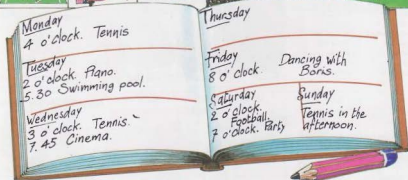 Monday
4 o'clock. Tennis
Tuesday
2 o'clock. Piano.
5.30 Swimming pool.
Wednesday
3 o'clock. Tennis.
7.45 Cinema.
Thursday
Friday
8 o'clock. Dancing with
Boris.
Saturday
2 o'clock.
Football.
7 o'clock. Party
Sunday
Tennis in the
afternoon.